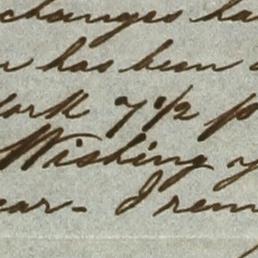 changes ha
has been
ork 7 1/2 p
Wishing y
ear - I rem